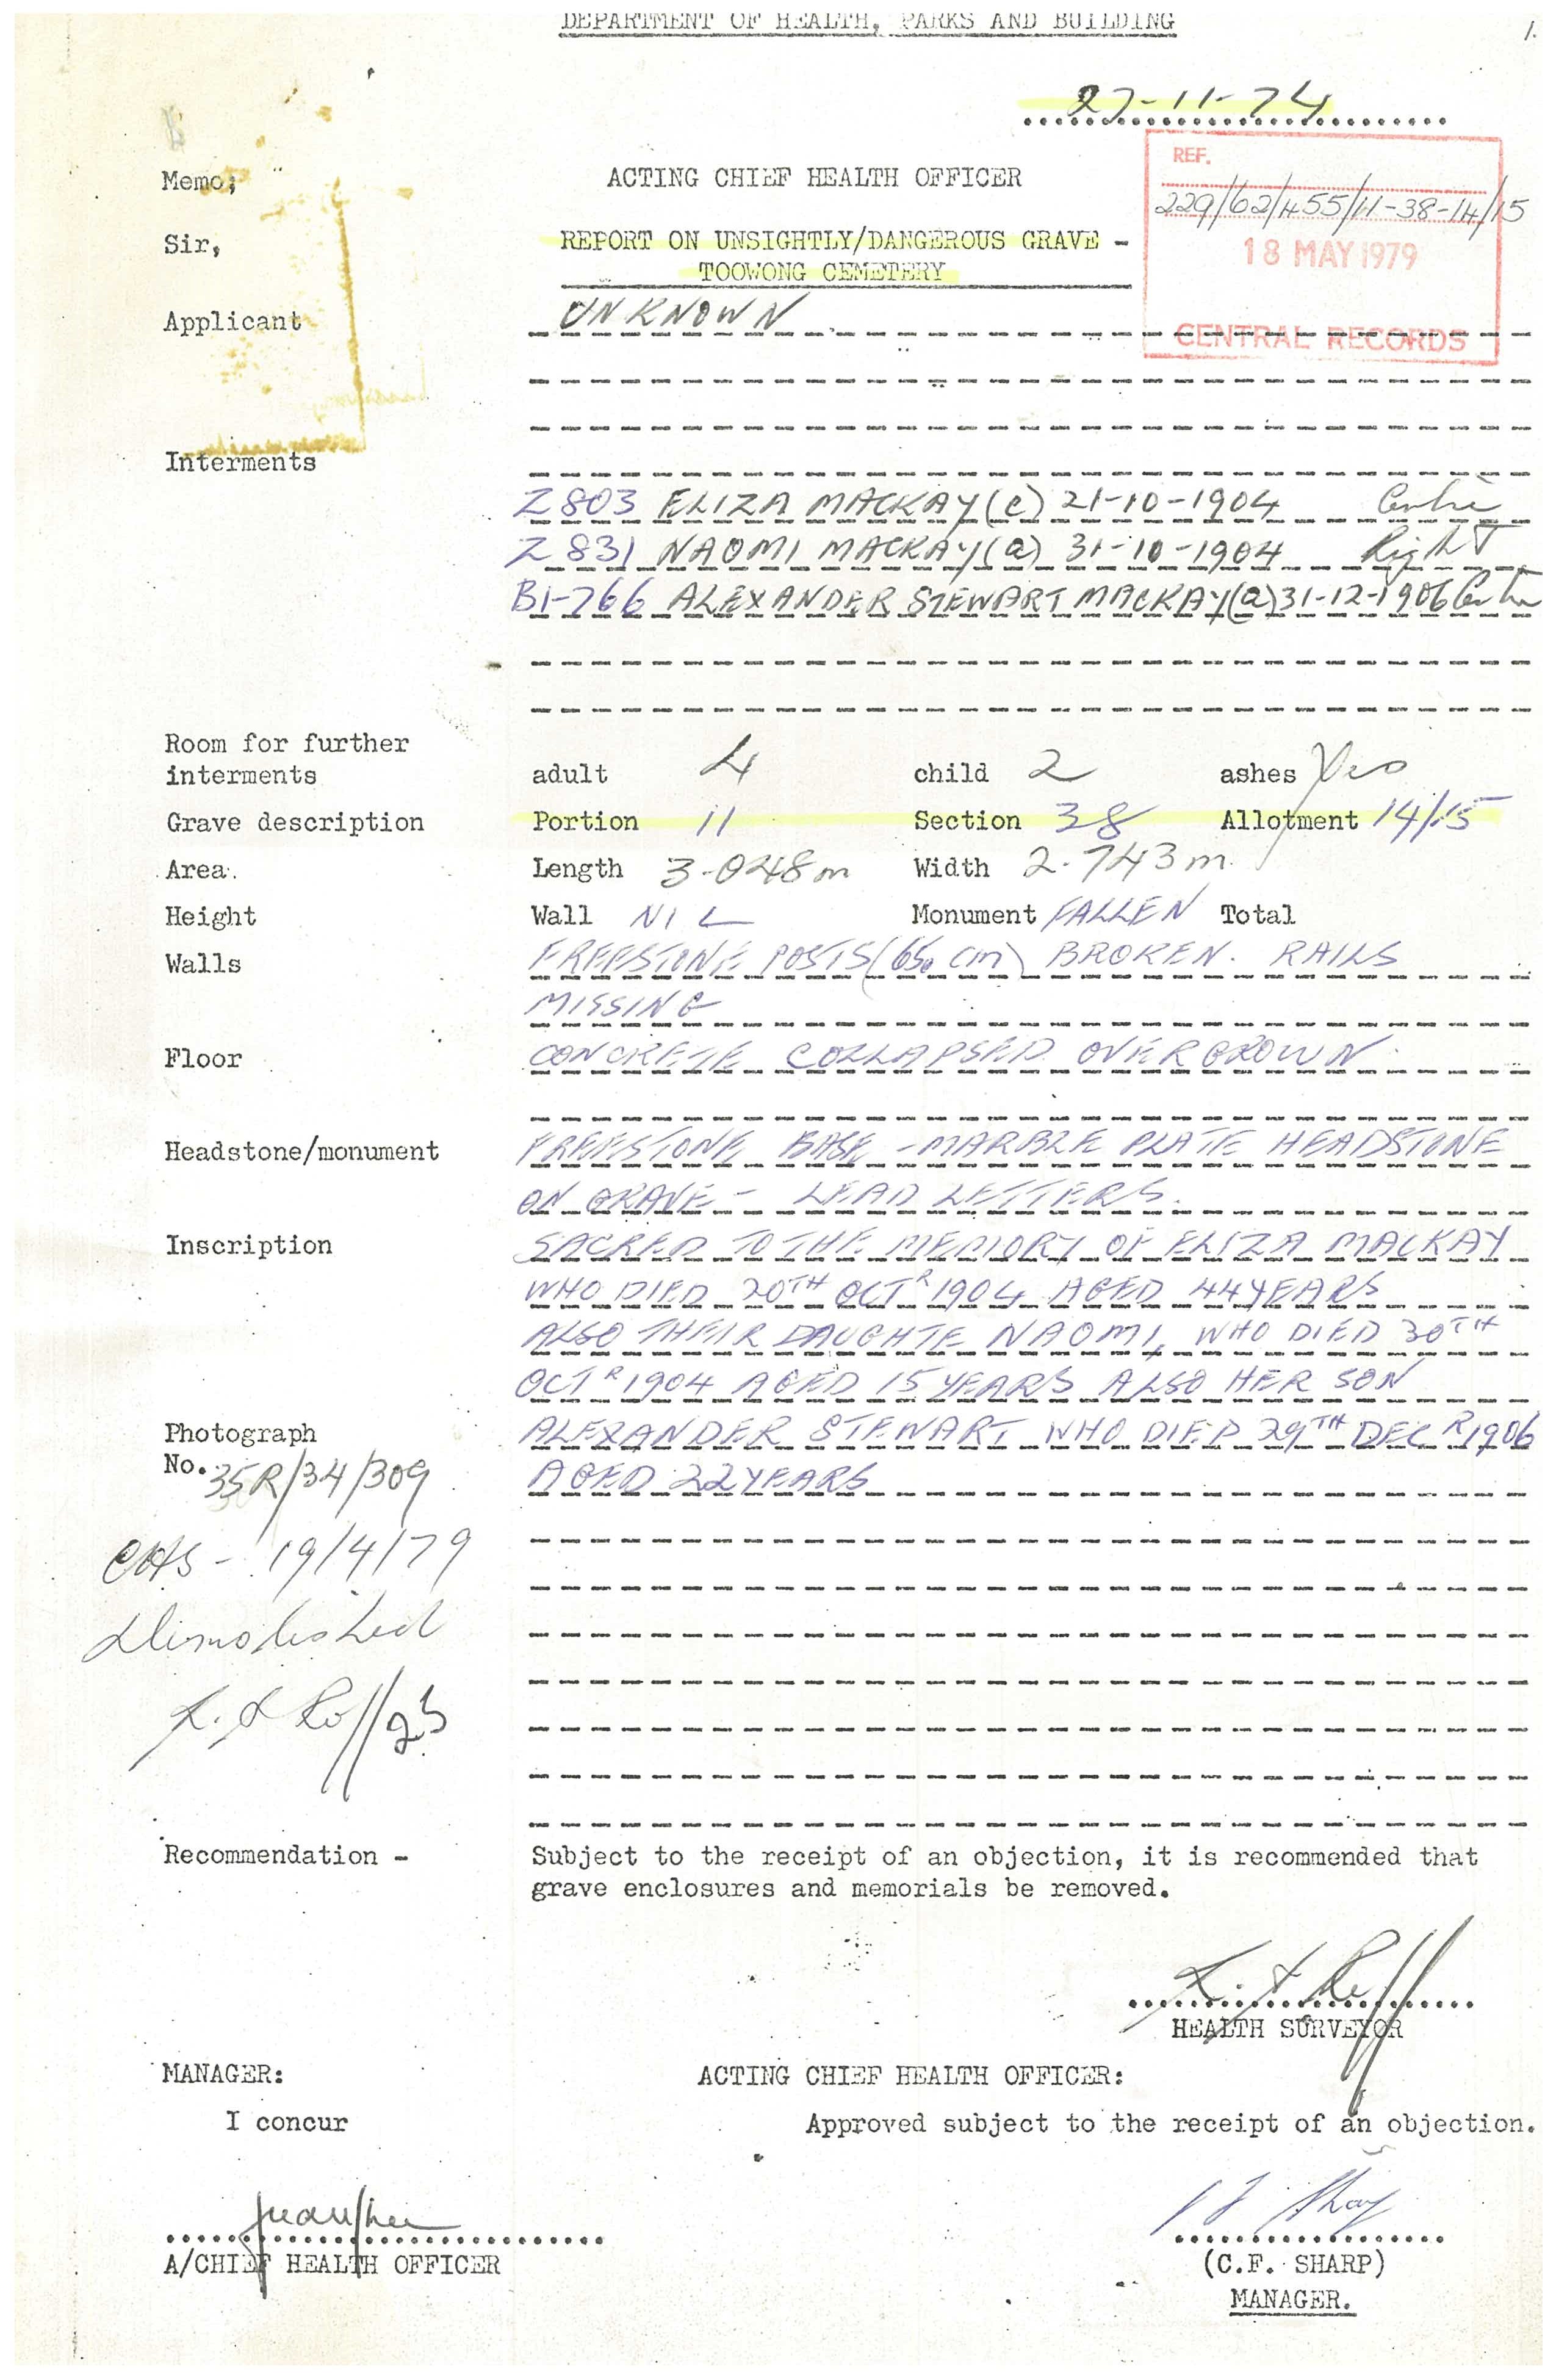 DEPARTMENT OF HEALTH, PARKS AND BUILDING
1.
27-11-74
Memo; ACTING CHIEF HEALTH OFFICER
REF.
229/62/455/11-38-14/15
18 MAY 1979
CENTRAL RECORDS
Sir, REPORT ON UNSIGHTLY/DANGEROUS GRAVE -
TOOWONG CEMETERY
Applicant UNKNOWN
Interments
Z803 ELIZA MACKAY (c) 21-10-1904 Centre
Z831 NAOMI MACKAY (a) 31-10-1904 Right
B1-766 ALEXANDER STEWART MACKAY (a) 31-12-1906 Centre
Room for further
interments adult 4 child 2 ashes Yes
Grave description Portion 11 Section 38 Allotment 14/15
Area. Length 3.048m Width 2.743m.
Height Wall NIL Monument FALLEN Total
Walls FREESTONE POSTS (65. cm) BROKEN. RAILS
MISSING
Floor CONCRETE COLLAPSED. OVERGROWN.
Headstone/monument FREESTONE BASE - MARBLE PLATE HEADSTONE
ON GRAVE - LEAD LETTERS.
Inscription SACRED TO THE MEMORY OF ELIZA MACKAY
WHO DIED 20TH OCTR 1904 AGED 44 YEARS
ALSO THEIR DAUGHTE NAOMI, WHO DIED 30TH
OCTR 1904 AGED 15 YEARS ALSO HER SON
Photograph ALEXANDER STEWART WHO DIED 29TH DECR 1906
No. 35R/34/309 AGED 22 YEARS
19/4/79
Demolished
Recommendation - Subject to the receipt of an objection, it is recommended that
grave enclosures and memorials be removed.
HEALTH SURVEYOR
MANAGER: ACTING CHIEF HEALTH OFFICER:
I concur Approved subject to the receipt of an objection.
A/CHIEF HEALTH OFFICER (C.F. SHARP)
MANAGER.